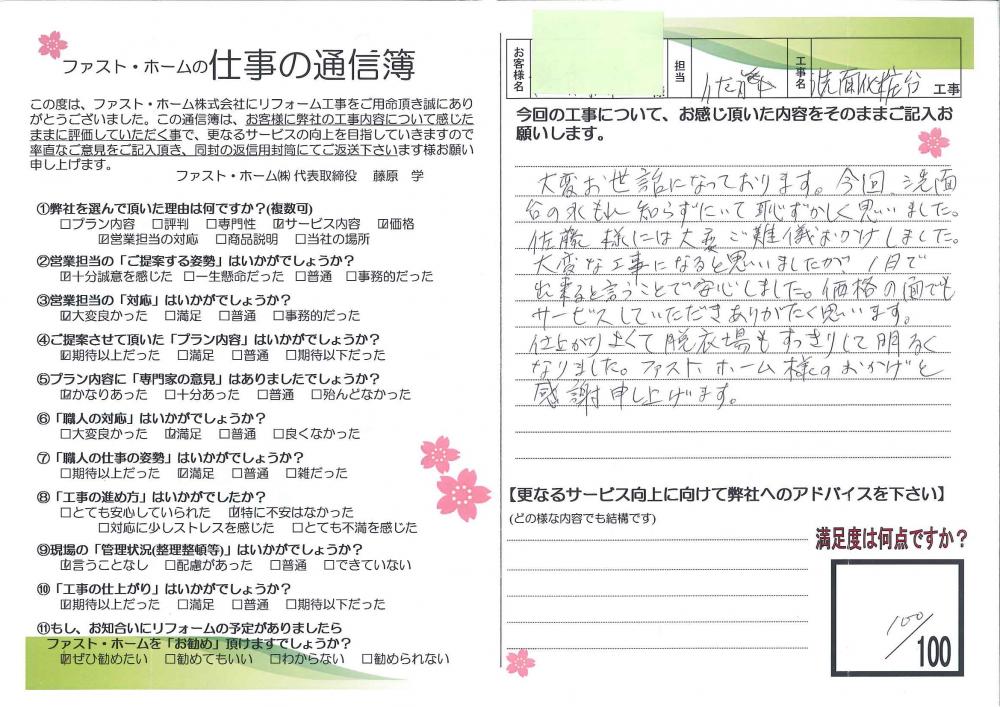 ファスト・ホームの仕事の通信簿
この度は、ファスト・ホーム株式会社にリフォーム工事をご用命頂き誠にあり
がとうございました。この通信簿は、お客様に弊社の工事内容について感じた
ままに評価していただく事で、更なるサービスの向上を目指していきますので
率直なご意見をご記入頂き、同封の返信用封筒にてご返送下さいます様お願い
申し上げます。
ファスト・ホーム㈱ 代表取締役 藤原 学
①弊社を選んで頂いた理由は何ですか?(複数可)
□プラン内容 □評判 □専門性 ☑サービス内容 ☑価格
☑営業担当の対応 □商品説明 □当社の場所
②営業担当の「ご提案する姿勢」はいかがでしょうか?
☑十分誠意を感じた □一生懸命だった □普通 □事務的だった
③営業担当の「対応」はいかがでしょうか?
☑大変良かった □満足 □普通 □事務的だった
④ご提案させて頂いた「プラン内容」はいかがでしょうか?
☑期待以上だった □満足 □普通 □期待以下だった
⑤プラン内容に「専門家の意見」はありましたでしょうか?
☑かなりあった □十分あった □普通 □殆んどなかった
⑥「職人の対応」はいかがでしょうか?
□大変良かった ☑満足 □普通 □良くなかった
⑦「職人の仕事の姿勢」はいかがでしょうか?
□期待以上だった ☑満足 □普通 □雑だった
⑧「工事の進め方」はいかがでしたか?
□とても安心していられた ☑特に不安はなかった
□対応に少しストレスを感じた □とても不満を感じた
⑨現場の「管理状況(整理整頓等)」はいかがでしょうか?
☑言うことなし □配慮があった □普通 □できていない
⑩「工事の仕上がり」はいかがでしょうか?
☑期待以上だった □満足 □普通 □期待以下だった
⑪もし、お知合いにリフォームの予定がありましたら
ファスト・ホームを「お勧め」頂けますでしょうか?
☑ぜひ勧めたい □勧めてもいい □わからない □勧められない
お客様名 担当 佐藤 工事名 洗面化粧台 工事
今回の工事について、お感じ頂いた内容をそのままご記入お
願いします。
大変お世話になっております。今回、洗面
台の水もれ知らずにいて恥ずかしく思いました。
佐藤様には大変ご難儀おかけしました。
大変な工事になると思いましたが、1日で
出来ると言うことで安心しました。価格の面でも
サービスしていただきありがたく思います。
仕上がりよくて脱衣場もすっきりして明るく
なりました。ファストホーム様のおかげと
感謝申し上げます。
【更なるサービス向上に向けて弊社へのアドバイスを下さい】
(どの様な内容でも結構です)
満足度は何点ですか?
100/100